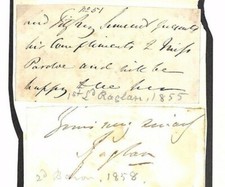 No 51
and Fitzroy Somerset presents
his Compliments to Miss
Pardoe and will be
happy to see her
1st Ld Raglan, 1855
Yours very
Raglan
2d Baron, 1858.